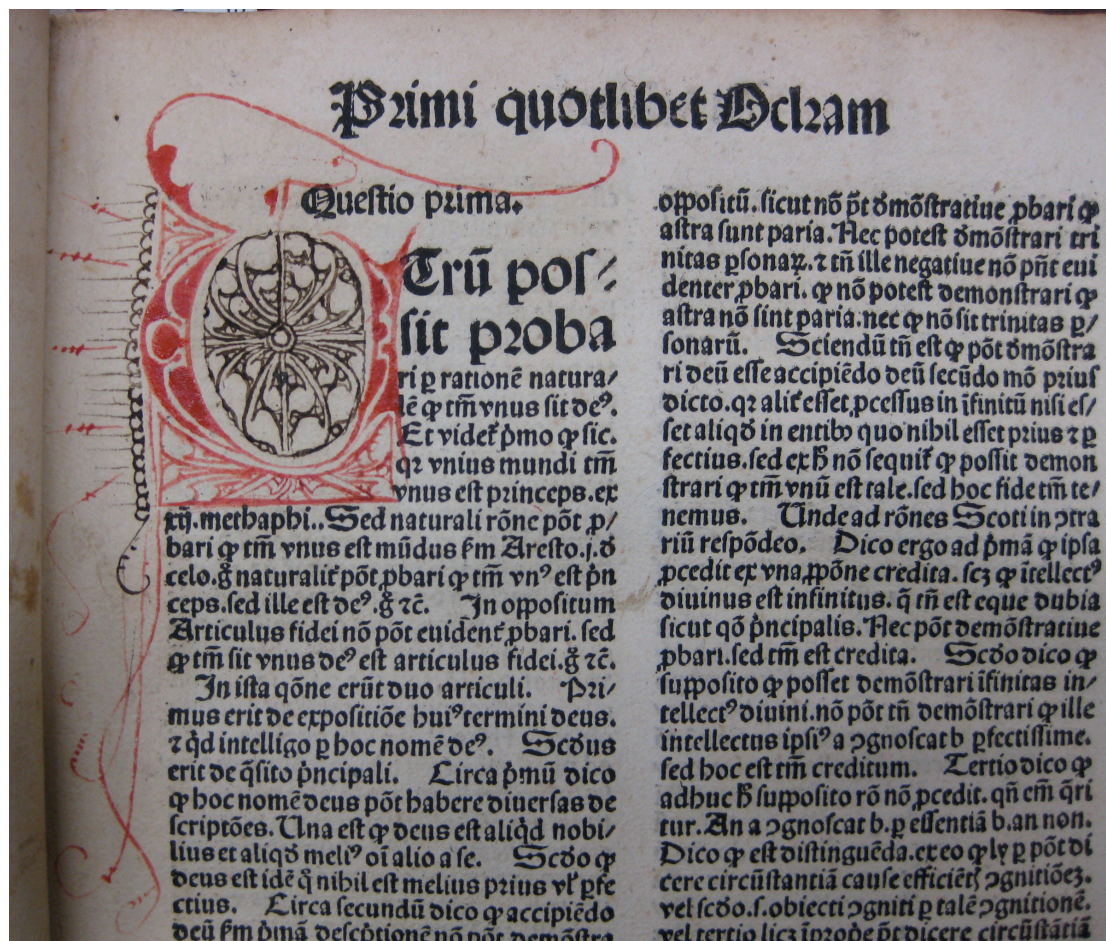 Primi quotlibet Ockam
Questio prima.
Trū pos⸗
sit proba
ri ꝑ rationē natura/
lē ꝙ tm̄ vnus sit deꝰ.
Et videt᷑ p̾mo ꝙ sic.
qꝛ vnius mundi tm̄
vnus est princeps. ex
xij. methaphi.. Sed naturali rōne pōt ꝓ/
bari ꝙ tm̄ vnus est mūdus fm̄ Aresto. j. đ
celo. g̊ naturalit᷑ pōt ꝓbari ꝙ tm̄ vnꝰ est p̾n
ceps. sed ille est deꝰ. g̊ ⁊c̄. In oppositum
Articulus fidei nō pōt euident᷑ ꝓbari. sed
ꝙ tm̄ sit vnus deꝰ est articulus fidei. g̊ ⁊c̄.
In ista qōne erūt duo articuli. Pri/
mus erit de expositiōe huiꝰ termini deus.
⁊ qͥd intelligo ꝑ hoc nomē deꝰ. Scđus
erit de q̄sito p̾ncipali. Circa p̾mū dico
ꝙ hoc nomē deus pōt habere diuersas de
scriptōes. Una est ꝙ deus est aliqͥd nobi/
lius et aliqđ meliꝰ oī alio a se. Scđo ꝙ
deus est idē qͥ nihil est melius prius vl̾ ꝑfe
ctius. Circa secundū dico ꝙ accipiēdo
deū fm̄ p̾mā descp̾tionē nō pōt demonstra
oppositū. sicut nō p̄t đmōstratiue ꝓbari ꝙ
astra sunt paria. Nec potest đmōstrari tri
nitas ꝑsonaꝝ. ⁊ tn̄ ille negatiue nō pn̄t eui
denter ꝓbari. ꝙ nō potest demonstrari ꝙ
astra nō sint paria. nec ꝙ nō sit trinitas ꝑ/
sonarū. Sciendū tn̄ est ꝙ pōt đmōstra
ri deū esse accipiēdo deū secūdo mō prius
dicto. qꝛ alit᷑ esset ꝓcessus in īfinitū nisi es/
set aliqđ in entibꝰ quo nihil esset prius ⁊ ꝑ
fectius. sed ex ħ nō sequit᷑ ꝙ possit demon
strari ꝙ tm̄ vnū est tale. sed hoc fide tm̄ te/
nemus. Unde ad rōnes Scoti in ↄtra
riū respōdeo. Dico ergo ad p̾mā ꝙ ipsa
ꝓcedit ex vna ꝓpōne credita. scꝫ ꝙ ītellectꝰ
diuinus est infinitus. q̄ tn̄ est eque dubia
sicut qō p̾ncipalis. Nec pōt demōstratiue
ꝓbari. sed tm̄ est credita. Scđo dico ꝙ
supposito ꝙ posset demōstrari īfinitas in/
tellectꝰ diuini. nō pōt tn̄ demōstrari ꝙ ille
intellectus ipsiꝰ a ↄgnoscat b ꝑfectissime.
sed hoc est tm̄ creditum. Tertio dico ꝙ
adhuc ħ supposito rō nō ꝓcedit. qn̄ em̄ q̄ri
tur. An a ↄgnoscat b. ꝑ essentiā b. an non.
Dico ꝙ est distinguēda. ex eo ꝙ ly ꝑ pōt di
cere circūstantiā cause efficiētꝭ ↄgnitiōeꝫ.
vel scđo. s. obiecti ↄgniti ꝑ talē ↄgnitionē.
vel tertio licꝫ īprop̾e p̄t dicere circūstātiā